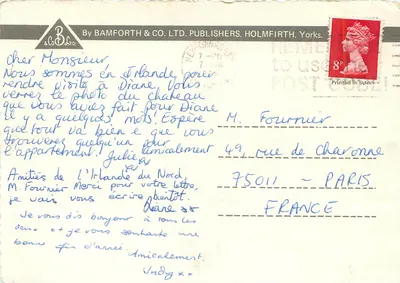 By BAMFORTH & CO. LTD. PUBLISHERS, HOLMFIRTH, Yorks.
B
& Co Ltd
REMEMBER
to use
POSTCODE!
8½P
Cher Monsieur,
Nous sommes en Irlande pour
rendre visite à Diane. Vous
verrez le photo du chateau
que vous aviez fait pour Diane
il y a quelques mots. Espère
que tout va bien et que vous
trouverez quelqu'un pour
l'appartement! Amicalement
Julie
Amitiés de L'Irlande du Nord,
M. Fournier Merci pour votre lettre.
je vais vous écrire bientôt.
Diane xx
Je vous dis bonjour à tous les
deux et je vous souhaite une
bonne fin d'année.
Amicalement.
xx
M. Fournier
49, rue de Charonne
75011 - PARIS
FRANCE